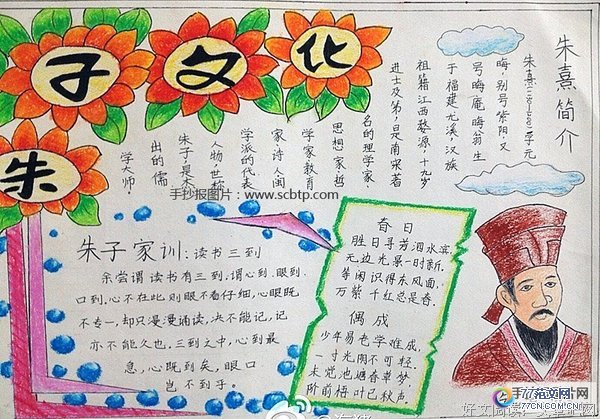 朱子文化
朱熹简介
朱熹(1130-1200)字元
晦,别号紫阳,又
号晦庵,晦翁,生
于福建尤溪,汉族
祖籍江西婺源,十九岁
进士及第,是南宋著
名的理学家
思想家、哲
学家、教育
家、诗人、闽
学派的代表
人物,世称
朱子,是
出的儒
学大师!
手抄报图片:www.scbtp.com
朱子家训:读书三到
余尝谓读书有三到,谓心到、眼到、
口到,心不在此,则眼不看仔细,心眼既
不专一,却只漫漫诵读,决不能记,记
亦不能久也,三到之中,心到最
急,心既到矣,眼口
岂不到乎。
春日
胜日寻芳泗水滨,
无边光景一时新。
等闲识得东风面,
万紫千红总是春。
偶成
少年易老学难成,
一寸光阴不可轻.
未觉池塘春草梦,
阶前梧叶已秋声。
手机范文网
77CN.COM.CN